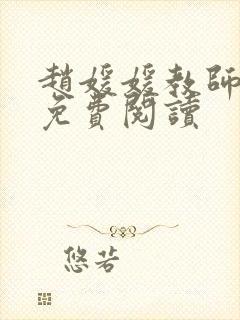 趙媛媛教師
免費閱讀
悠若